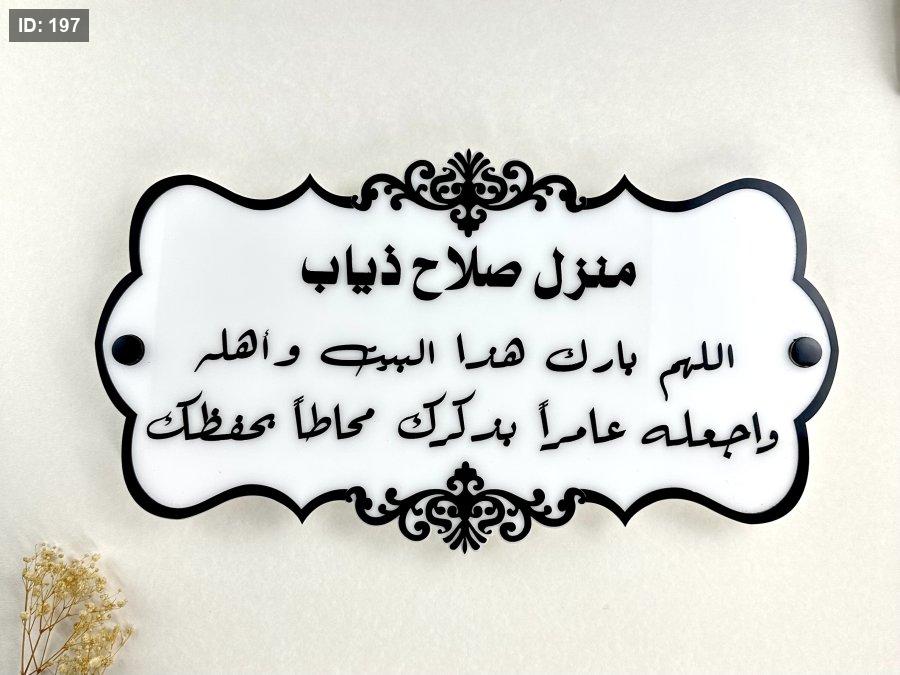 ID: 197
منزل صلاح ذياب
اللهم بارك هذا البيت وأهله
واجعله عامراً بذكرك محاطاً بحفظك